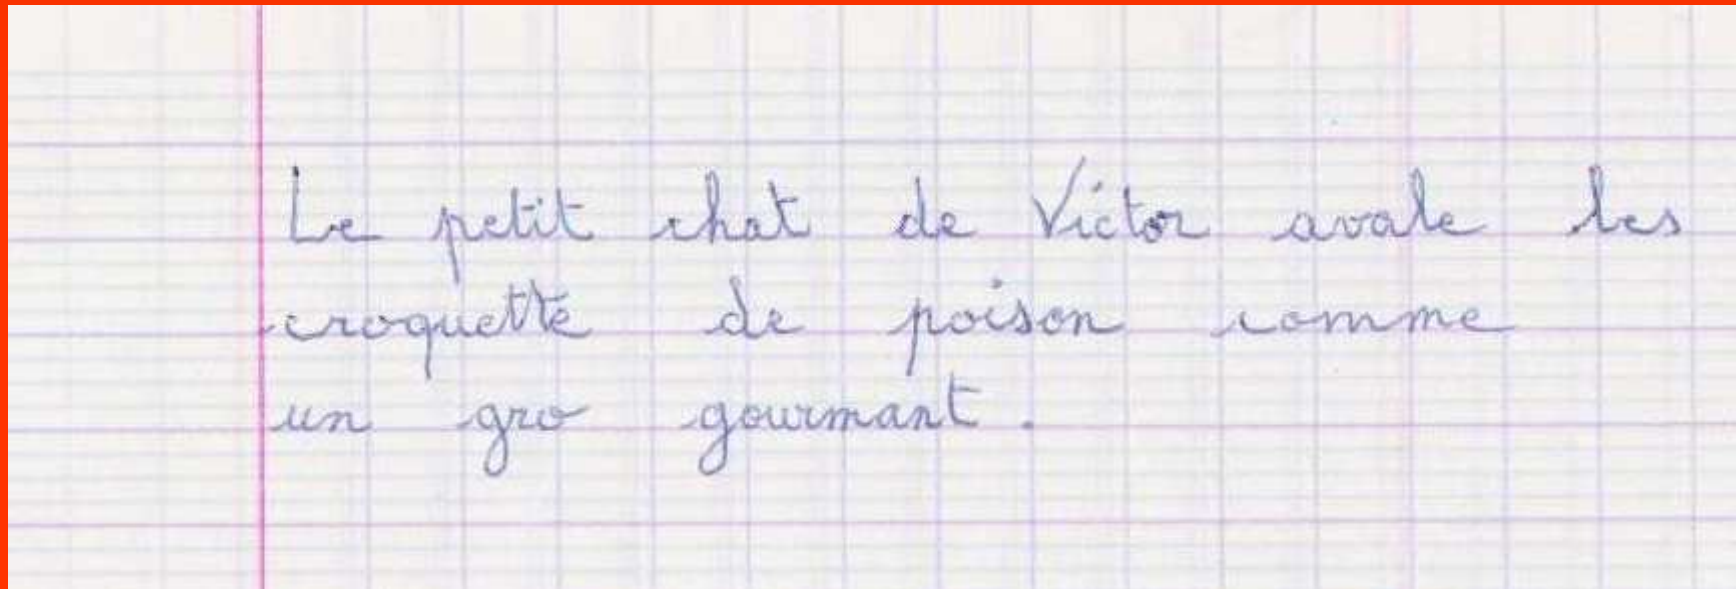 Le petit chat de Victor avale les
croquette de poison comme
un gro gourmant.